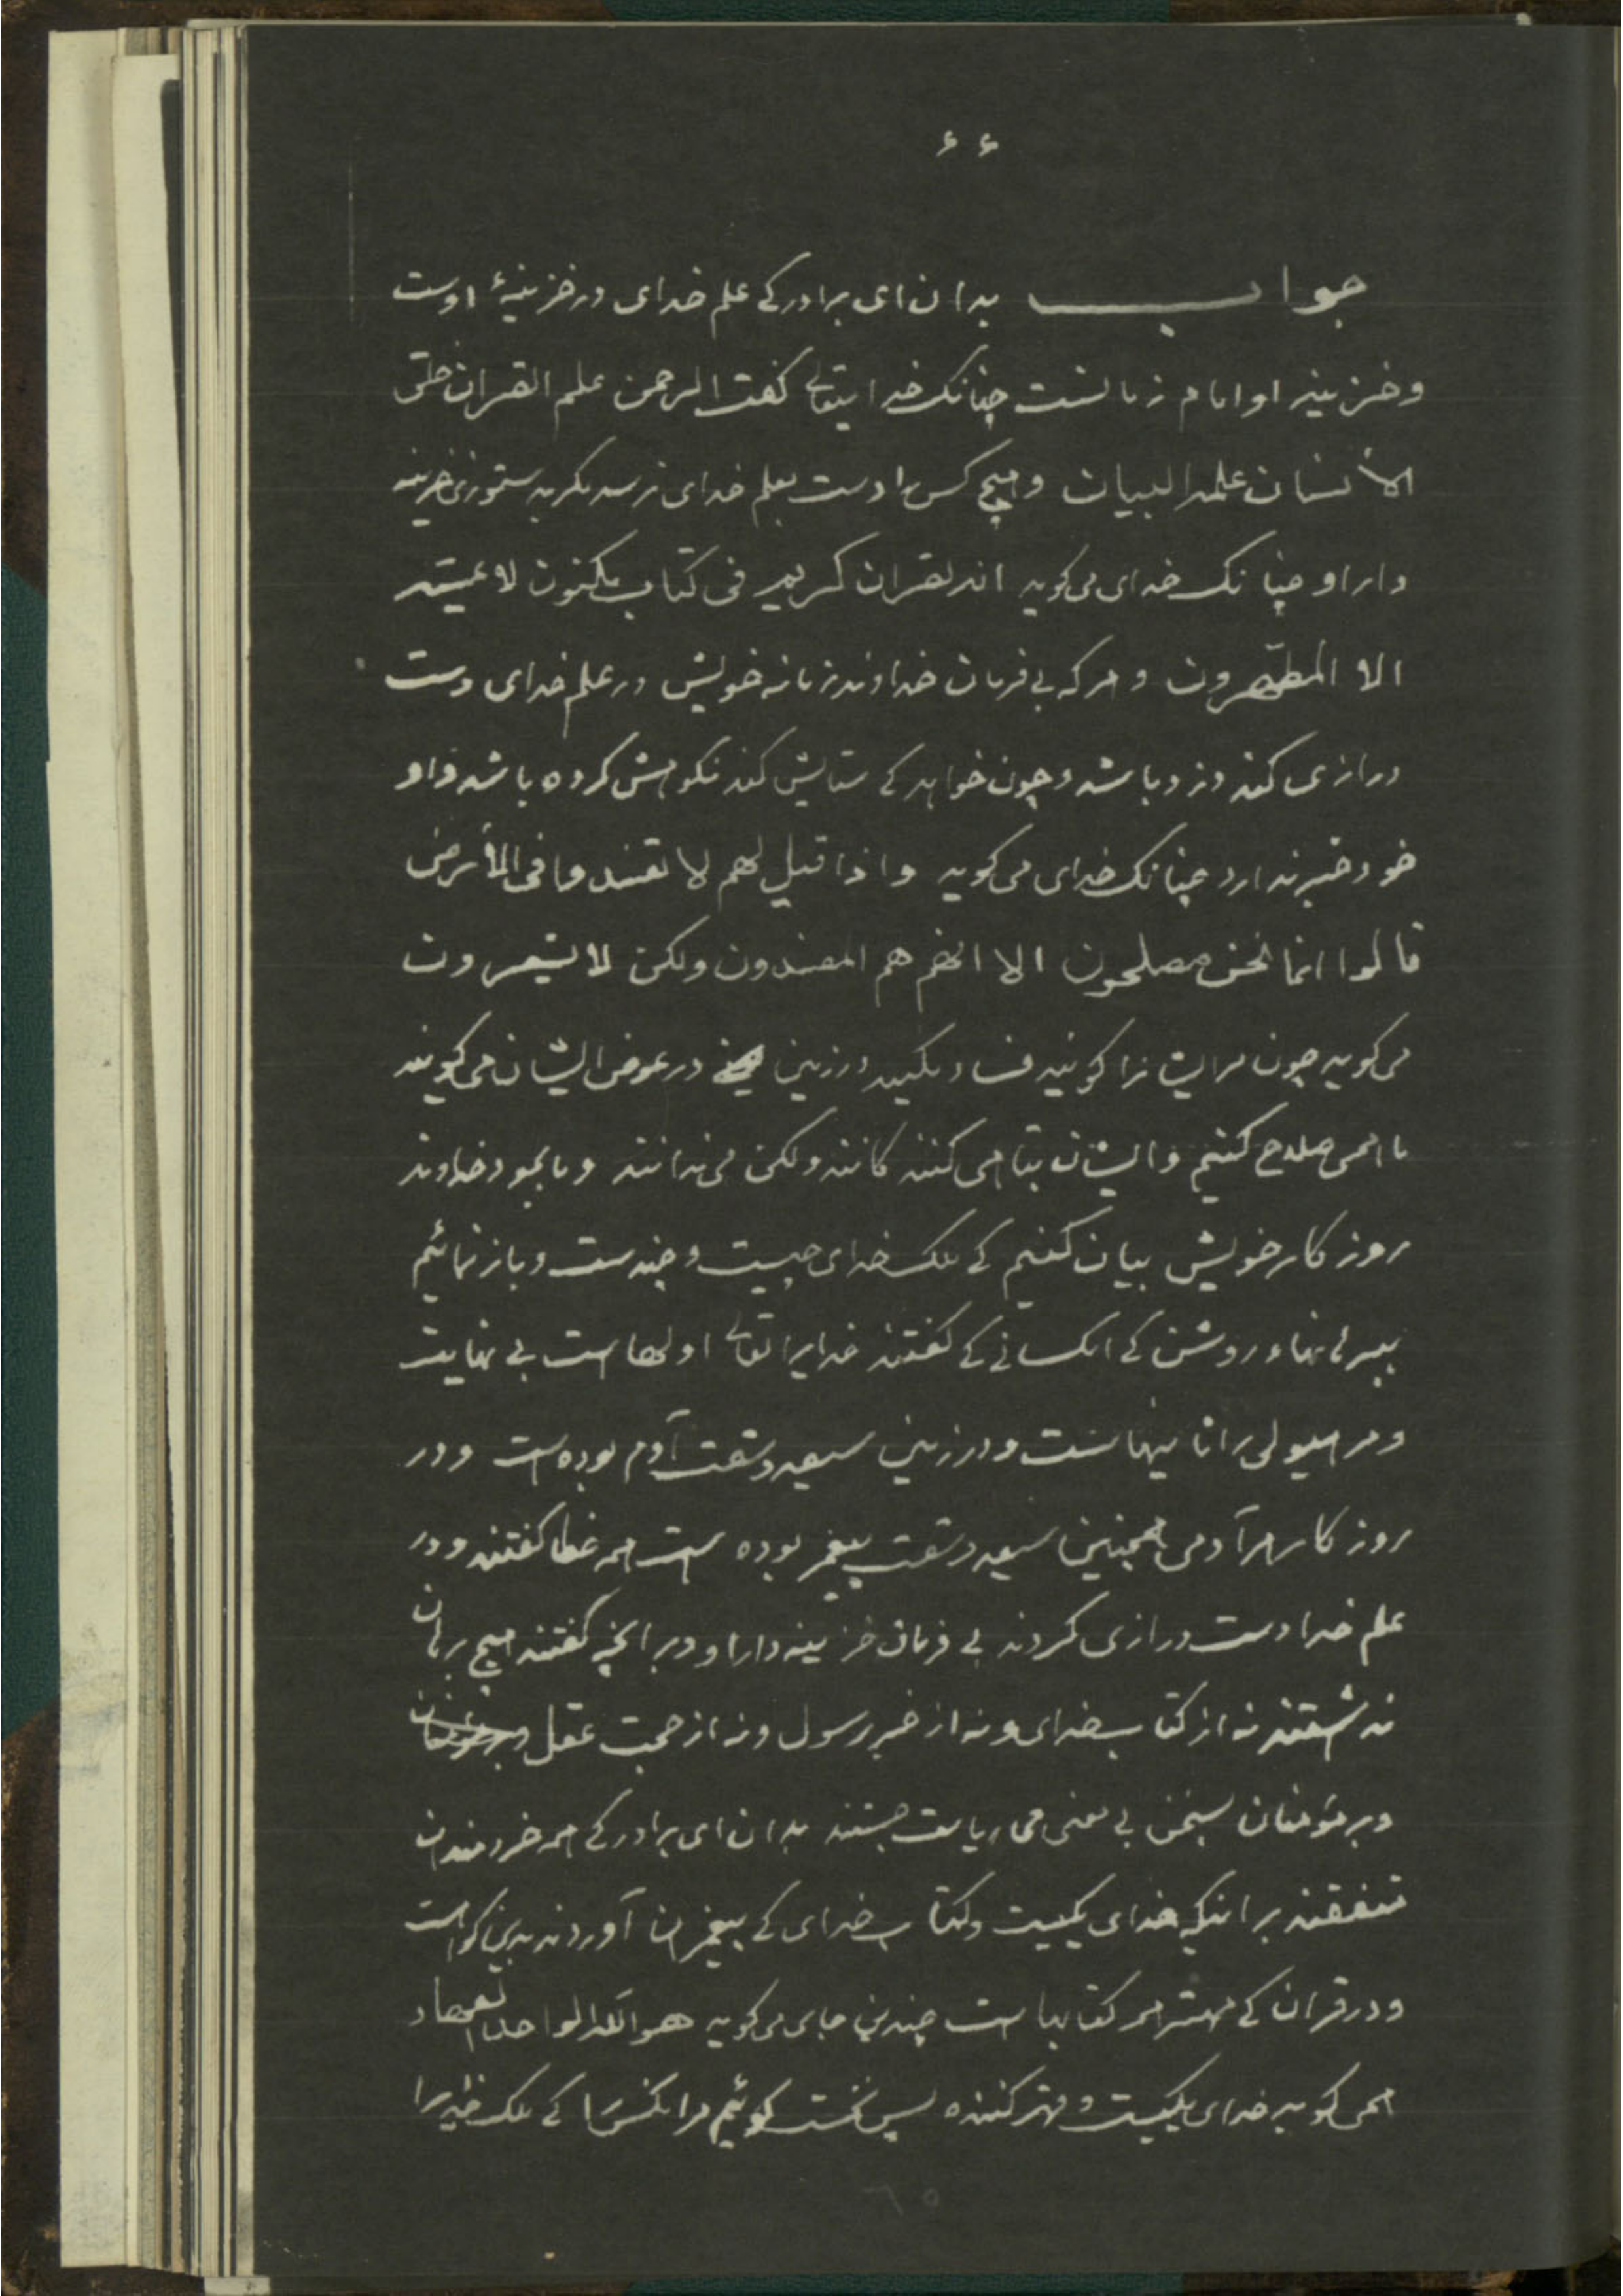 ۶۶
جواب بدان ای برادر کے علم خدای در خزینهٔ اوست
و خزینه او امام زمانست چنانک خدایتعالے گفت الرحمن علم القران خلق
الأنسان علمه البیان و هیچ کس را دست بعلم خدای نرسد مگر بدستوری خزینه
دار او چنانک خدای می گوید انه لقران کریم فی کتاب مکنون لا یمسّه
الا المطهّرون و هر که بی فرمان خداوند زمانه خویش در علم خدای دست
درازی کند دزد باشد و چون خواهد کے ستایش کند نکوهش کرده باشد و او
خود خبر ندارد چنانک خدای می گوید و اذا قیل لهم لا تفسدوا فی الأرض
قالوا انما نحن مصلحون الا انهم هم المفسدون ولکن لا یشعرون
می گوید چون مر ایشانرا گویند فساد مکنید در زمین در عوض ایشان می گویند
ما همی صلاح کنیم و ایشان تباهی کنند کانند ولکن می ندانند و ما بجود خداوند
روزکار خویش بیان کنیم کے ملک خدای چیست و چندست و باز نمائیم
ببرهانهاء روشن کے انکسانے کے گفتند خدایرا تعالے اولهاست بے نهایت
و مر هیولی را ثانیهاست و در زمین سیصد و شصت آدم بوده است و در
روزکار هر آدمی همچنین سیصد و شصت پیغمبر بوده است همه خطا گفتند و در
علم خدا دست درازی کردند بی فرمان خزینه دار او و بر انچه گفتند هیچ برهان
نداشتند نه از کتاب خدای و نه از خبر رسول و نه از حجت عقل
و بر مؤمنان بسخن بی معنی ریاست جستند بدان ای برادر کے همه خردمندان
متفقند بر انکه خدای یکیست و کتاب خدای کے پیغمبران آوردند بدین گواست
و در قران کے مهتر همه کتابهاست چندین جای می گوید هو الله الواحد القهار
همی گوید خدای یکیست و قهر کننده پس نخست گوئیم مر انکس را کے ملک خدایرا